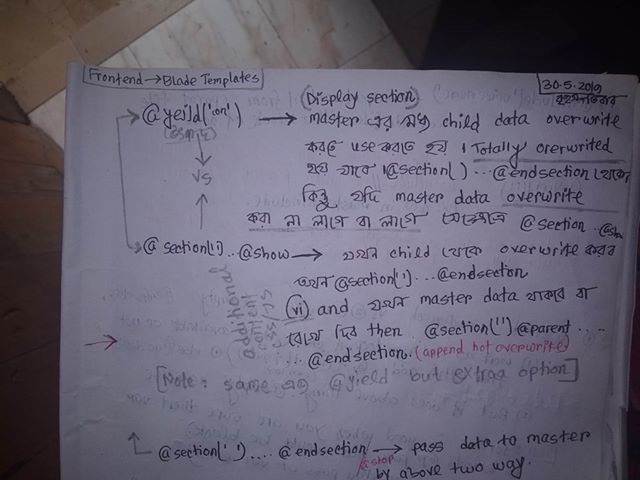 Frontend → Blade Templates
30-5-2019
বৃহস্পতিবার
(Display section)
@yeild('con') → master এর মধ্য child data overwrite
করতে use করতে হয়। Totally overwrited
হয়ে যাবে। @section() ... @endsection থেকে
VS
কিন্তু যদি master data overwrite
করা না লাগে বা লাগে সেক্ষেত্রে @section..@show
@section(') .. @show → যখন child থেকে overwrite করব
তখন @section(') ... @endsection
additional
content
css/js
(vi) and যখন master data থাকবে বা
রেখে দিব then @section('') @parent ....
... @endsection. (append not overwrite)
[Note: same as @yield but extraa option]
@section(' ') .... @endsection → pass data to master
@stop
by above two way.